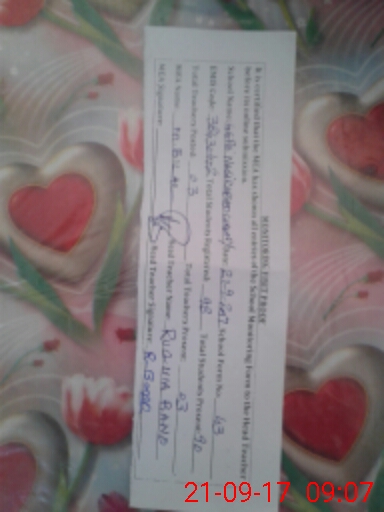 MONITORING VISIT PROOF
It is certified that the MEA has shown all entries of the School Monitoring Form to the Head Teacher
before its online submission.
School Name: Date: 21-9-2017 School Form No: 43
EMIS Code: Total Students Registered: 98 Total Students Present: 90
Total Teachers Posted: 03 Total Teachers Present: 03
MEA Name: M. Bilal Head Teacher Name: RUQIYYA BANO
MEA Signature: Head Teacher Signature: R. Bano
21-09-17 09:07